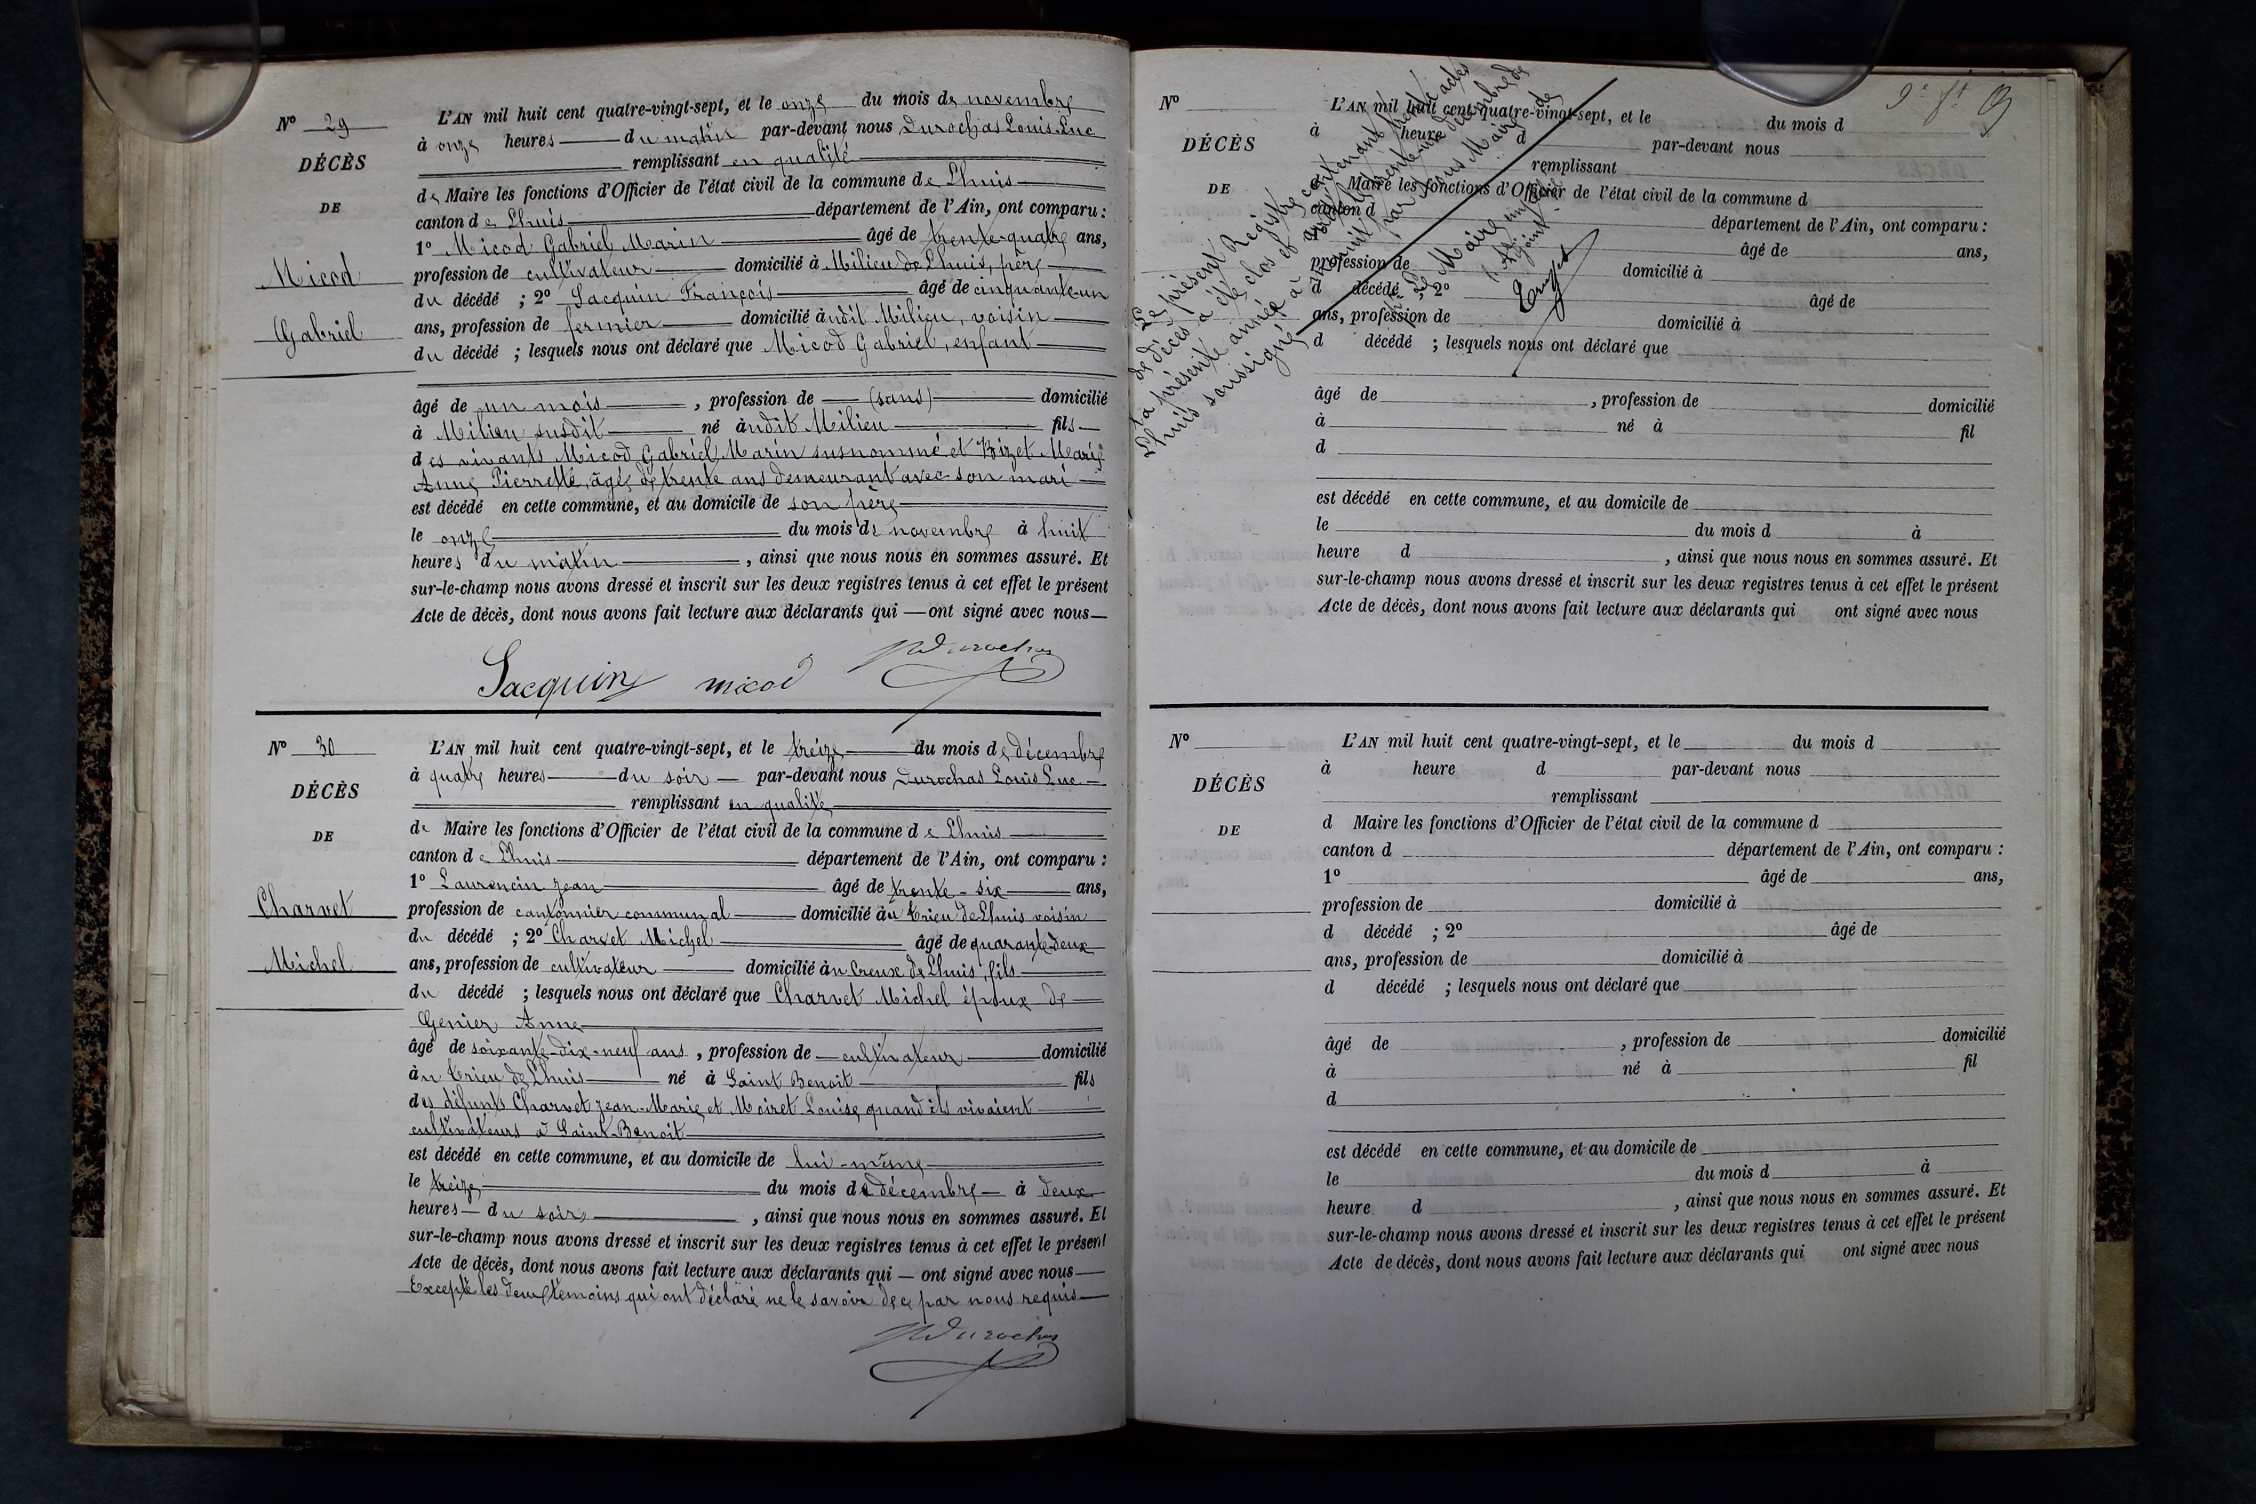 N° 29
DÉCÈS
DE
Micod
Gabriel
L'AN mil huit cent quatre-vingt-sept, et le onze du mois de novembre
à onze heures du matin par-devant nous Durochas Louis Luc
remplissant en qualité
de Maire les fonctions d'Officier de l'état civil de la commune de Lhuis
canton de Lhuis département de l'Ain, ont comparu :
1° Micod Gabriel Marin âgé de trente-quatre ans,
profession de cultivateur domicilié à Milieu de Lhuis, père
du décédé ; 2° Jacquin François âgé de cinquante-un
ans, profession de fermier domicilié àudit Milieu, voisin
du décédé ; lesquels nous ont déclaré que Micod Gabriel, enfant
âgé de un mois , profession de (sans) domicilié
à Milieu susdit né àudit Milieu fils
des vivants Micod Gabriel Marin susnommé et Bizet Marie
Anne Pierrette, âgée de trente ans demeurant avec son mari
est décédé en cette commune, et au domicile de son père
le onze du mois de novembre à huit
heures du matin , ainsi que nous nous en sommes assuré. Et
sur-le-champ nous avons dressé et inscrit sur les deux registres tenus à cet effet le présent
Acte de décès, dont nous avons fait lecture aux déclarants qui ont signé avec nous
Jacquin micod Durochas
N° 30
DÉCÈS
DE
Charvet
Michel
L'AN mil huit cent quatre-vingt-sept, et le treize du mois de décembre
à quatre heures du soir par-devant nous Durochas Louis Luc
remplissant en qualité
de Maire les fonctions d'Officier de l'état civil de la commune de Lhuis
canton de Lhuis département de l'Ain, ont comparu :
1° Laurencin Jean âgé de trente-six ans,
profession de cantonnier communal domicilié àu Crieu de Lhuis voisin
du décédé ; 2° Charvet Michel âgé de quarante-deux
ans, profession de cultivateur domicilié àu Creux de Lhuis, fils
du décédé ; lesquels nous ont déclaré que Charvet Michel époux de
Genier Anne
âgé de soixante-dix-neuf ans , profession de cultivateur domicilié
àu Crieu de Lhuis né à Saint Benoit fils
des défunts Charvet Jean-Marie et Moiret Louise, quand ils vivaient
cultivateurs à Saint-Benoit
est décédé en cette commune, et au domicile de lui-même
le treize du mois de décembre à deux
heures du soir , ainsi que nous nous en sommes assuré. Et
sur-le-champ nous avons dressé et inscrit sur les deux registres tenus à cet effet le présent
Acte de décès, dont nous avons fait lecture aux déclarants qui ont signé avec nous
Excepté les deux témoins qui ont déclaré ne le savoir de ce par nous requis
Durochas
N°
DÉCÈS
DE
L'AN mil huit cent quatre-vingt-sept, et le du mois d
à heure d par-devant nous
remplissant
Maire les fonctions d'Officier de l'état civil de la commune d
canton d département de l'Ain, ont comparu :
âgé de ans,
profession de domicilié à
d décédé ; 2° âgé de
ans, profession de domicilié à
d décédé ; lesquels nous ont déclaré que
âgé de , profession de domicilié
à né à fil
d
est décédé en cette commune, et au domicile de
le du mois d à
heure d , ainsi que nous nous en sommes assuré. Et
sur-le-champ nous avons dressé et inscrit sur les deux registres tenus à cet effet le présent
Acte de décès, dont nous avons fait lecture aux déclarants qui ont signé avec nous
Le présent Registre contenant trente actes
de décès a été clos et arrêté le trente un décembre de
la présente année à par nous Maire de
Lhuis soussigné
Le Maire
Adjoint
N°
DÉCÈS
DE
L'AN mil huit cent quatre-vingt-sept, et le du mois d
à heure d par-devant nous
remplissant
d Maire les fonctions d'Officier de l'état civil de la commune d
canton d département de l'Ain, ont comparu :
1° âgé de ans,
profession de domicilié à
d décédé ; 2° âgé de
ans, profession de domicilié à
d décédé ; lesquels nous ont déclaré que
âgé de , profession de domicilié
à né à fil
d
est décédé en cette commune, et au domicile de
le du mois d à
heure d , ainsi que nous nous en sommes assuré. Et
sur-le-champ nous avons dressé et inscrit sur les deux registres tenus à cet effet le présent
Acte de décès, dont nous avons fait lecture aux déclarants qui ont signé avec nous